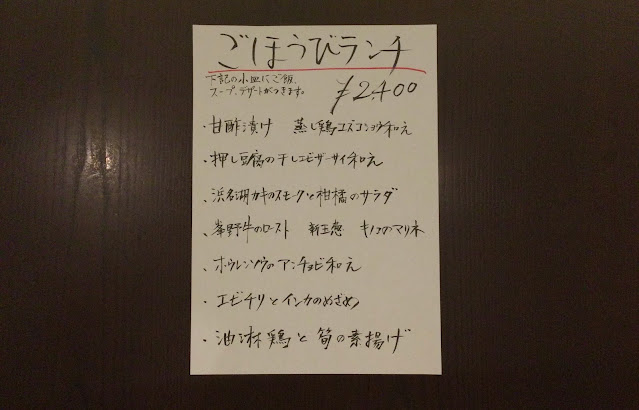 ごほうびランチ
下記の小皿にご飯、
スープ、デザートがつきます。
¥2,400
・甘酢漬け 蒸し鶏ユズコショウ和え
・押し豆腐の干しエビザーサイ和え
、浜名湖カキのスモークと柑橘のサラダ
、峯野牛のロースト 新玉葱 キノコのマリネ
、ホウレンソウのアンチョビ和え
、エビチリとインカのめざめ
、油淋鶏と筍の素揚げ